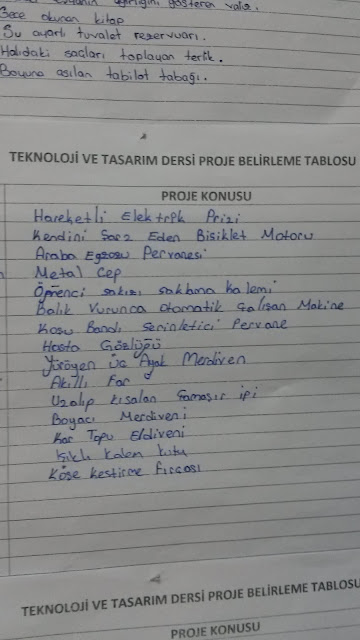 ağırlığını gösteren valiz.
Gece okunan kitap
Su ayarlı tuvalet rezervuarı.
Halıdaki saçları toplayan terlik.
Boyuna asılan tabilot tabağı.
TEKNOLOJİ VE TASARIM DERSİ PROJE BELİRLEME TABLOSU
PROJE KONUSU
Hareketli Elektrik Prizi
Kendini Sarz Eden Bisiklet Motoru
Araba Egzosu Pervanesi
Metal Cep
Öğrenci sakızı saklama kalemi
Balık Vurunca otomatik Çalışan Makine
Kosu Bandı Serinletici Pervane
Hasta Gözlüğü
Yürüyen üç Ayak Merdiven
Akıllı Far
Uzalıp kısalan Çamaşır ipi
Boyacı Merdiveni
Kar Topu Eldiveni
Işıklı Kalem kutu
Köşe kestirme Fırcası
TEKNOLOJİ VE TASARIM DERSİ PROJE BELİRLEME TABLOSU
PROJE KONUSU